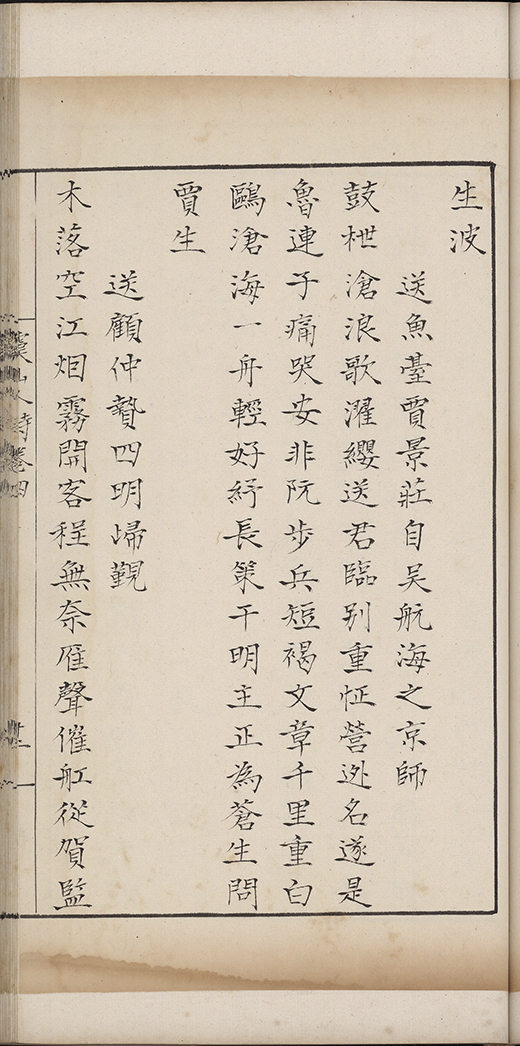 生波
送魚臺賈景莊自吴航海之京師
鼓枻滄浪歌濯纓送君臨别重怔營迯名遂是
魯連子痛哭安非阮步兵短褐文章千里重白
鷗滄海一舟輕好紓長策干明主正為蒼生問
賈生
送顧仲贄四明歸覲
木落空江烟霧開客程無奈雁聲催舡從賀監
山人詩卷四